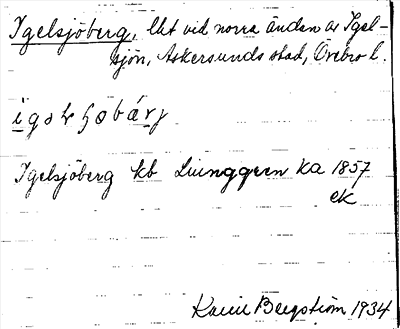 Igelsjöberg, lht vid norra ändan av Igel-
sjön, Askersunds stad, Örebro l.
Igelsjöberg kb Ljunggren KA 1857
ek
Karin Bergström 1934